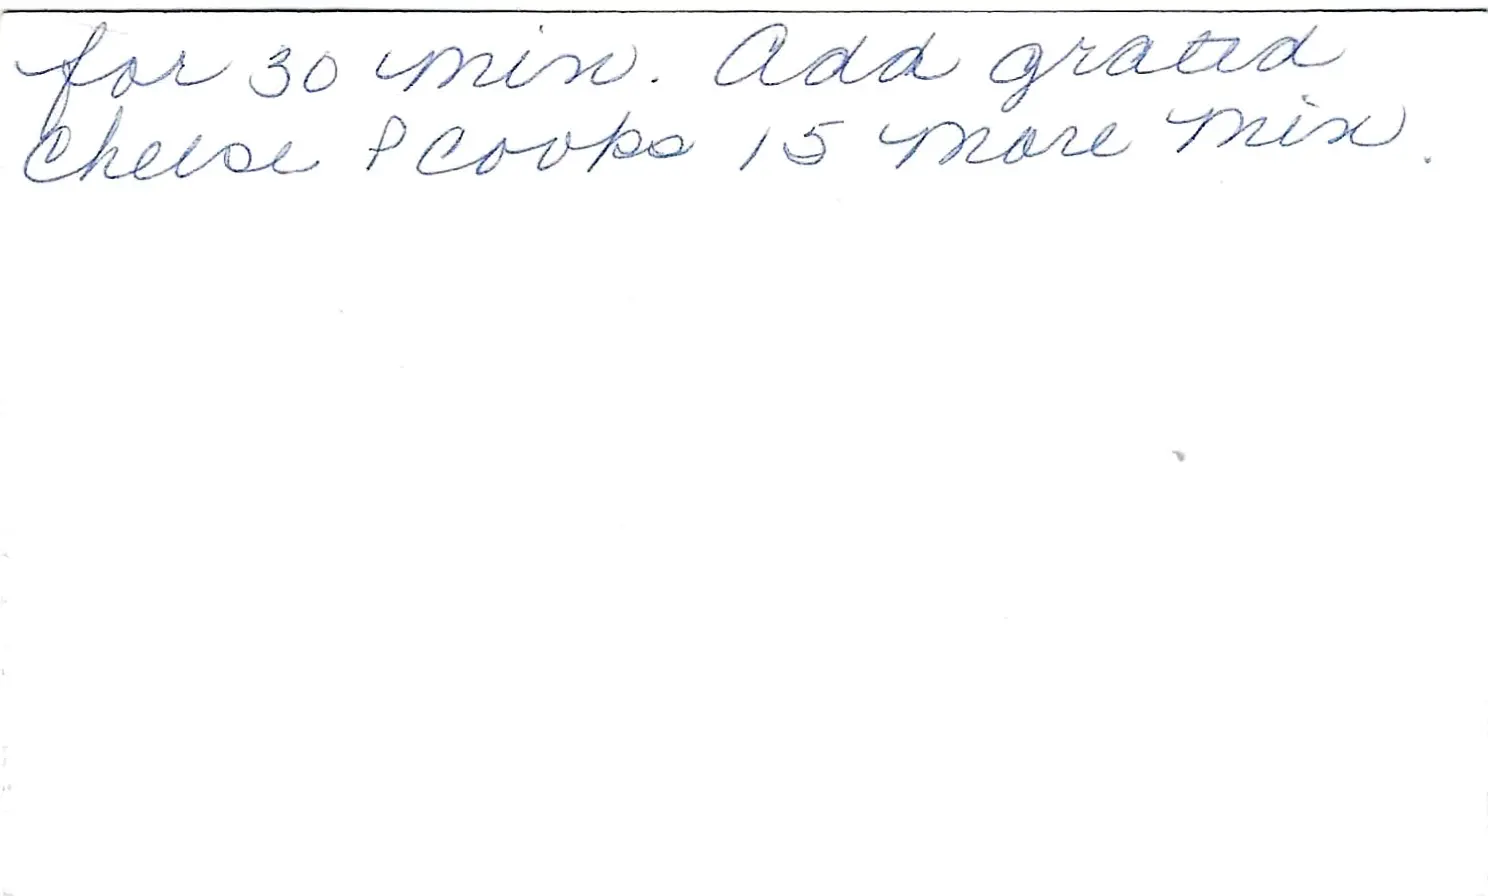 for 30 min. Add grated
cheese & cooks 15 more min.